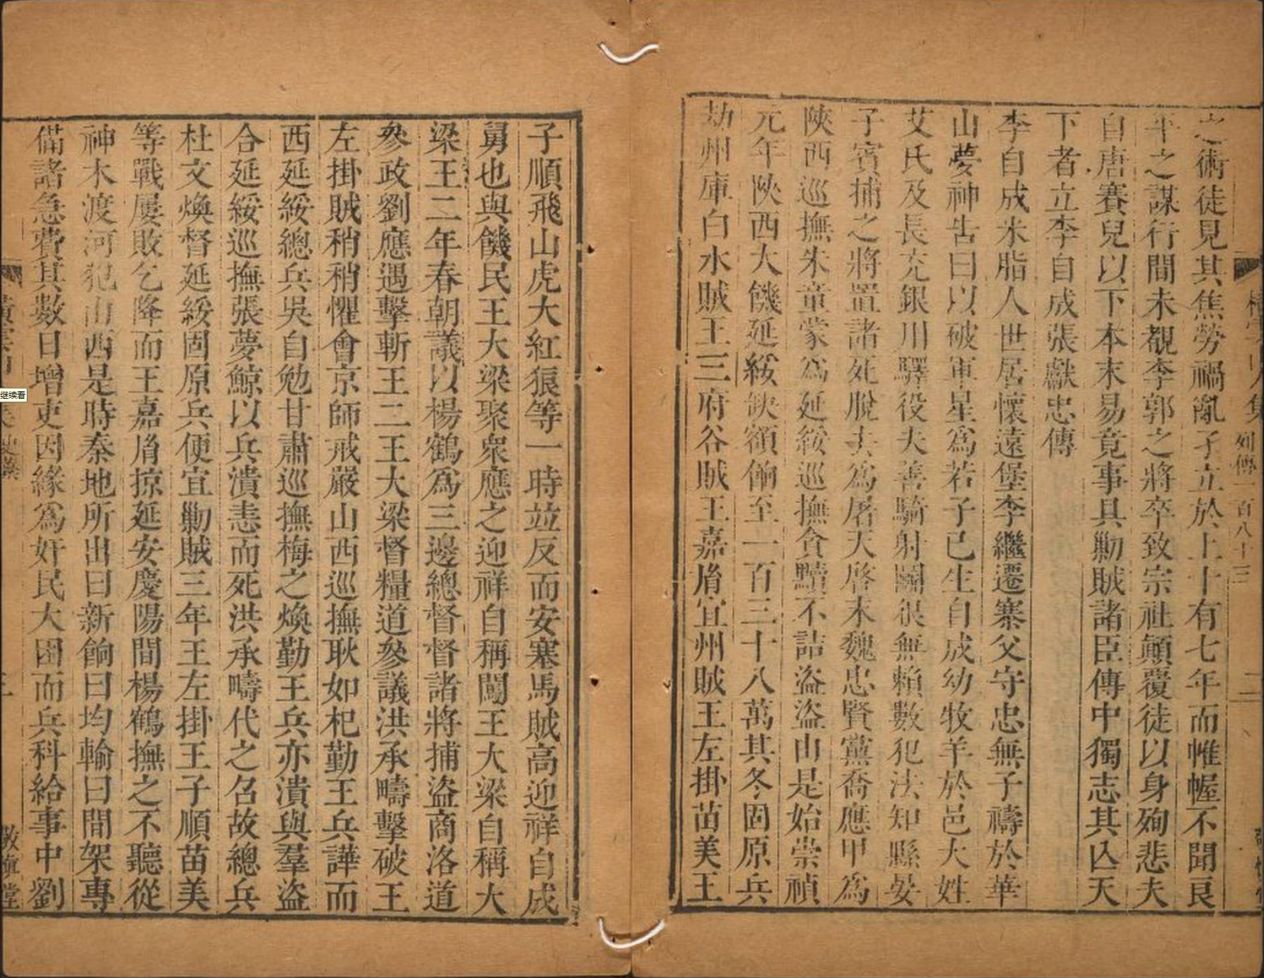 橫雲山人集 列傳一百八十三 二 敬慎堂
之術徒見其焦勞禍亂孑立於上十有七年而帷幄不聞良
平之謀行間未覩李郭之將卒致宗社顛覆徒以身殉悲夫
自唐賽兒以下本末易竟事具勦賊諸臣傳中獨志其亾天
下者立李自成張獻忠傳
李自成米脂人世居懷遠堡李繼遷寨父守忠無子禱於華
山夢神告曰以破軍星為若子已生自成幼牧羊於邑大姓
艾氏及長充銀川驛役夫善騎射鬬很無賴數犯法知縣晏
子賓捕之將置諸死脫去為屠天啓末魏忠賢黨喬應甲為
陝西巡撫朱童蒙為延綏巡撫貪黷不詰盜盜由是始崇禎
元年陝西大饑延綏缺額餉至一百三十八萬其冬固原兵
劫州庫白水賊王二府谷賊王嘉胤宜州賊王左掛苗美王
子順飛山虎大紅狼等一時竝反而安塞馬賊高迎祥自成
舅也與饑民王大梁聚衆應之迎祥自稱闖王大梁自稱大
梁王二年春朝議以楊鶴爲三邊總督督諸將捕盜商洛道
參政劉應遇擊斬王二王大梁督糧道參議洪承疇擊破王
左掛賊稍稍懼會京師戒嚴山西巡撫耿如杞勤王兵譁而
西延綏總兵吳自勉甘肅巡撫梅之煥勤王兵亦潰與羣盜
合延綏巡撫張夢鯨以兵潰恚而死洪承疇代之召故總兵
杜文煥督延綏固原兵便宜勦賊三年王左掛王子順苗美
等戰屢敗乞降而王嘉胤掠延安慶陽間楊鶴撫之不聽從
神木渡河犯山西是時秦地所出曰新餉曰均輸曰間架專
備諸急費其數日增吏因緣爲奸民大困而兵科給事中劉
敬慎堂
继续看